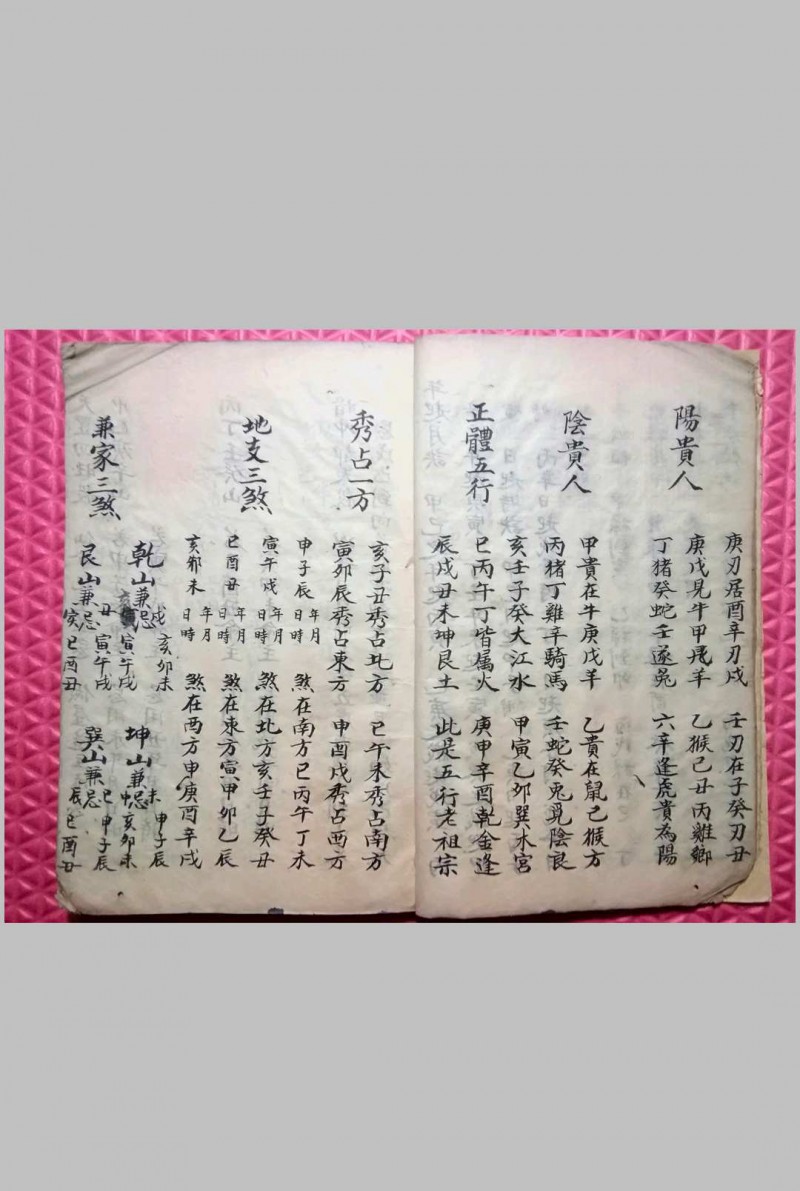 庚刃居酉辛刃戌 壬刃在子癸刃丑
陽貴人
庚戊見牛甲飛羊 乙猴己丑丙雞鄉
丁猪癸蛇壬遂兔 六辛逢虎貴為陽
陰貴人
甲貴在牛庚戊羊 乙貴在鼠己猴方
丙猪丁雞辛騎馬 壬蛇癸兎覓陰良
正體五行
亥壬子癸大江水 甲寅乙卯巽木宮
巳丙午丁皆属火 庚申辛酉乾金逢
辰戌丑未坤艮土 此是五行老祖宗
秀占一方
亥子丑秀占北方 巳午未秀占南方
寅卯辰秀占東方 申酉戌秀占西方
地支三煞
申子辰年月日時 煞在南方巳丙午丁未
寅午戌年月日時 煞在北方亥壬子癸丑
巳酉丑年月日時 煞在東方寅甲卯乙辰
亥卯未年月日時 煞在西方申庚酉辛戌
兼家三煞
乾山兼忌 戌亥卯未 寅午戌
坤山兼忌 未申子辰 亥卯未
艮山兼忌 丑寅午戌 巳酉丑
巽山兼忌 巳申子辰 辰巳酉丑